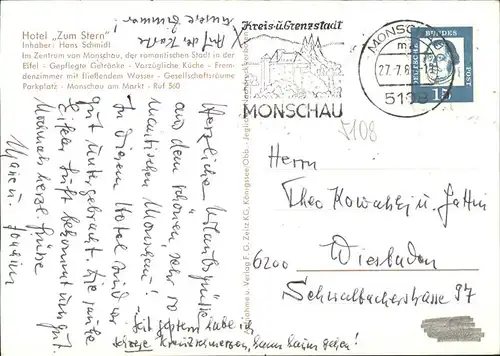 Hotel „Zum Stern"
Inhaber: Hans Schmidt
Im Zentrum von Monschau, der romantischen Stadt in der
Eifel - Gepflegte Getränke - Vorzügliche Küche - Frem-
denzimmer mit fließendem Wasser - Gesellschaftsräume
Parkplatz - Monschau am Markt - Ruf 560
X Auf der Karte
unsere Zimmer!
Herzliche Urlaubsgrüße
aus dem schönen, sehr ro
mantischen Monschau!
In diesem Hotel sind wir
gut untergebracht. Die rauhe
Eifelluft bekommt uns gut.
Nochmals herzl. Grüße
Joachim
Seit gestern habe ich
Kreuzschmerzen, kann kaum gehen!
Aufnahme u. Verlag F. G. Zeitz KG., Königssee/Obb.
Kreis-u.Grenzstadt
MONSCHAU
MONSCHAU
27.-7.6
5108
DEUTSCHE BUNDESPOST
15
5108
Herrn
Theo Kowahlej u. Gattin
6200 Wiesbaden
Schwalbacherstrasse 97